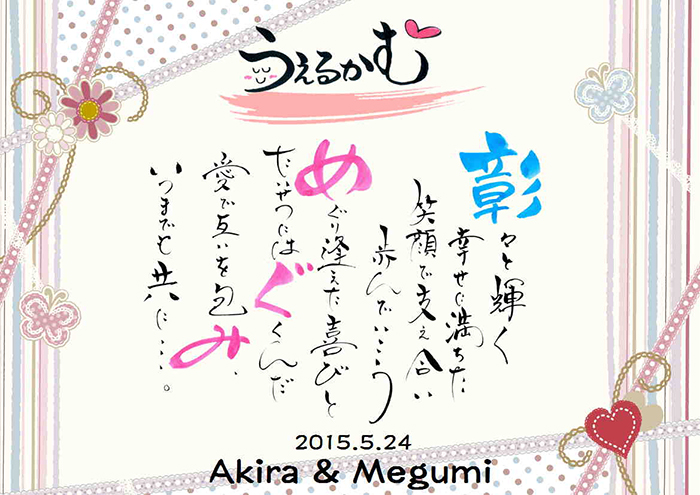 うぇるかむ
彰々と輝く
幸せに満ちた
笑顔で支え合い
歩んでいこう
めぐり逢えた喜びと
たいせつにはぐくんだ
愛で互いを包み、
いつまでも共に…。
2015.5.24
Akira & Megumi